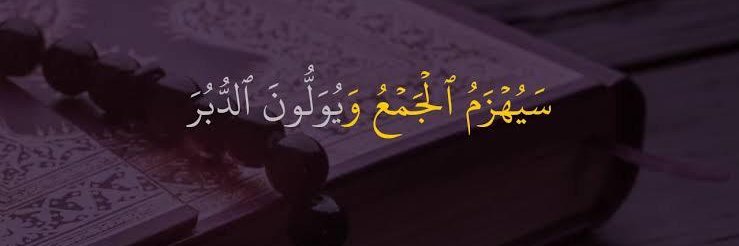 سَيُهْزَمُ ٱلْجَمْعُ وَيُوَلُّونَ ٱلدُّبُرَ